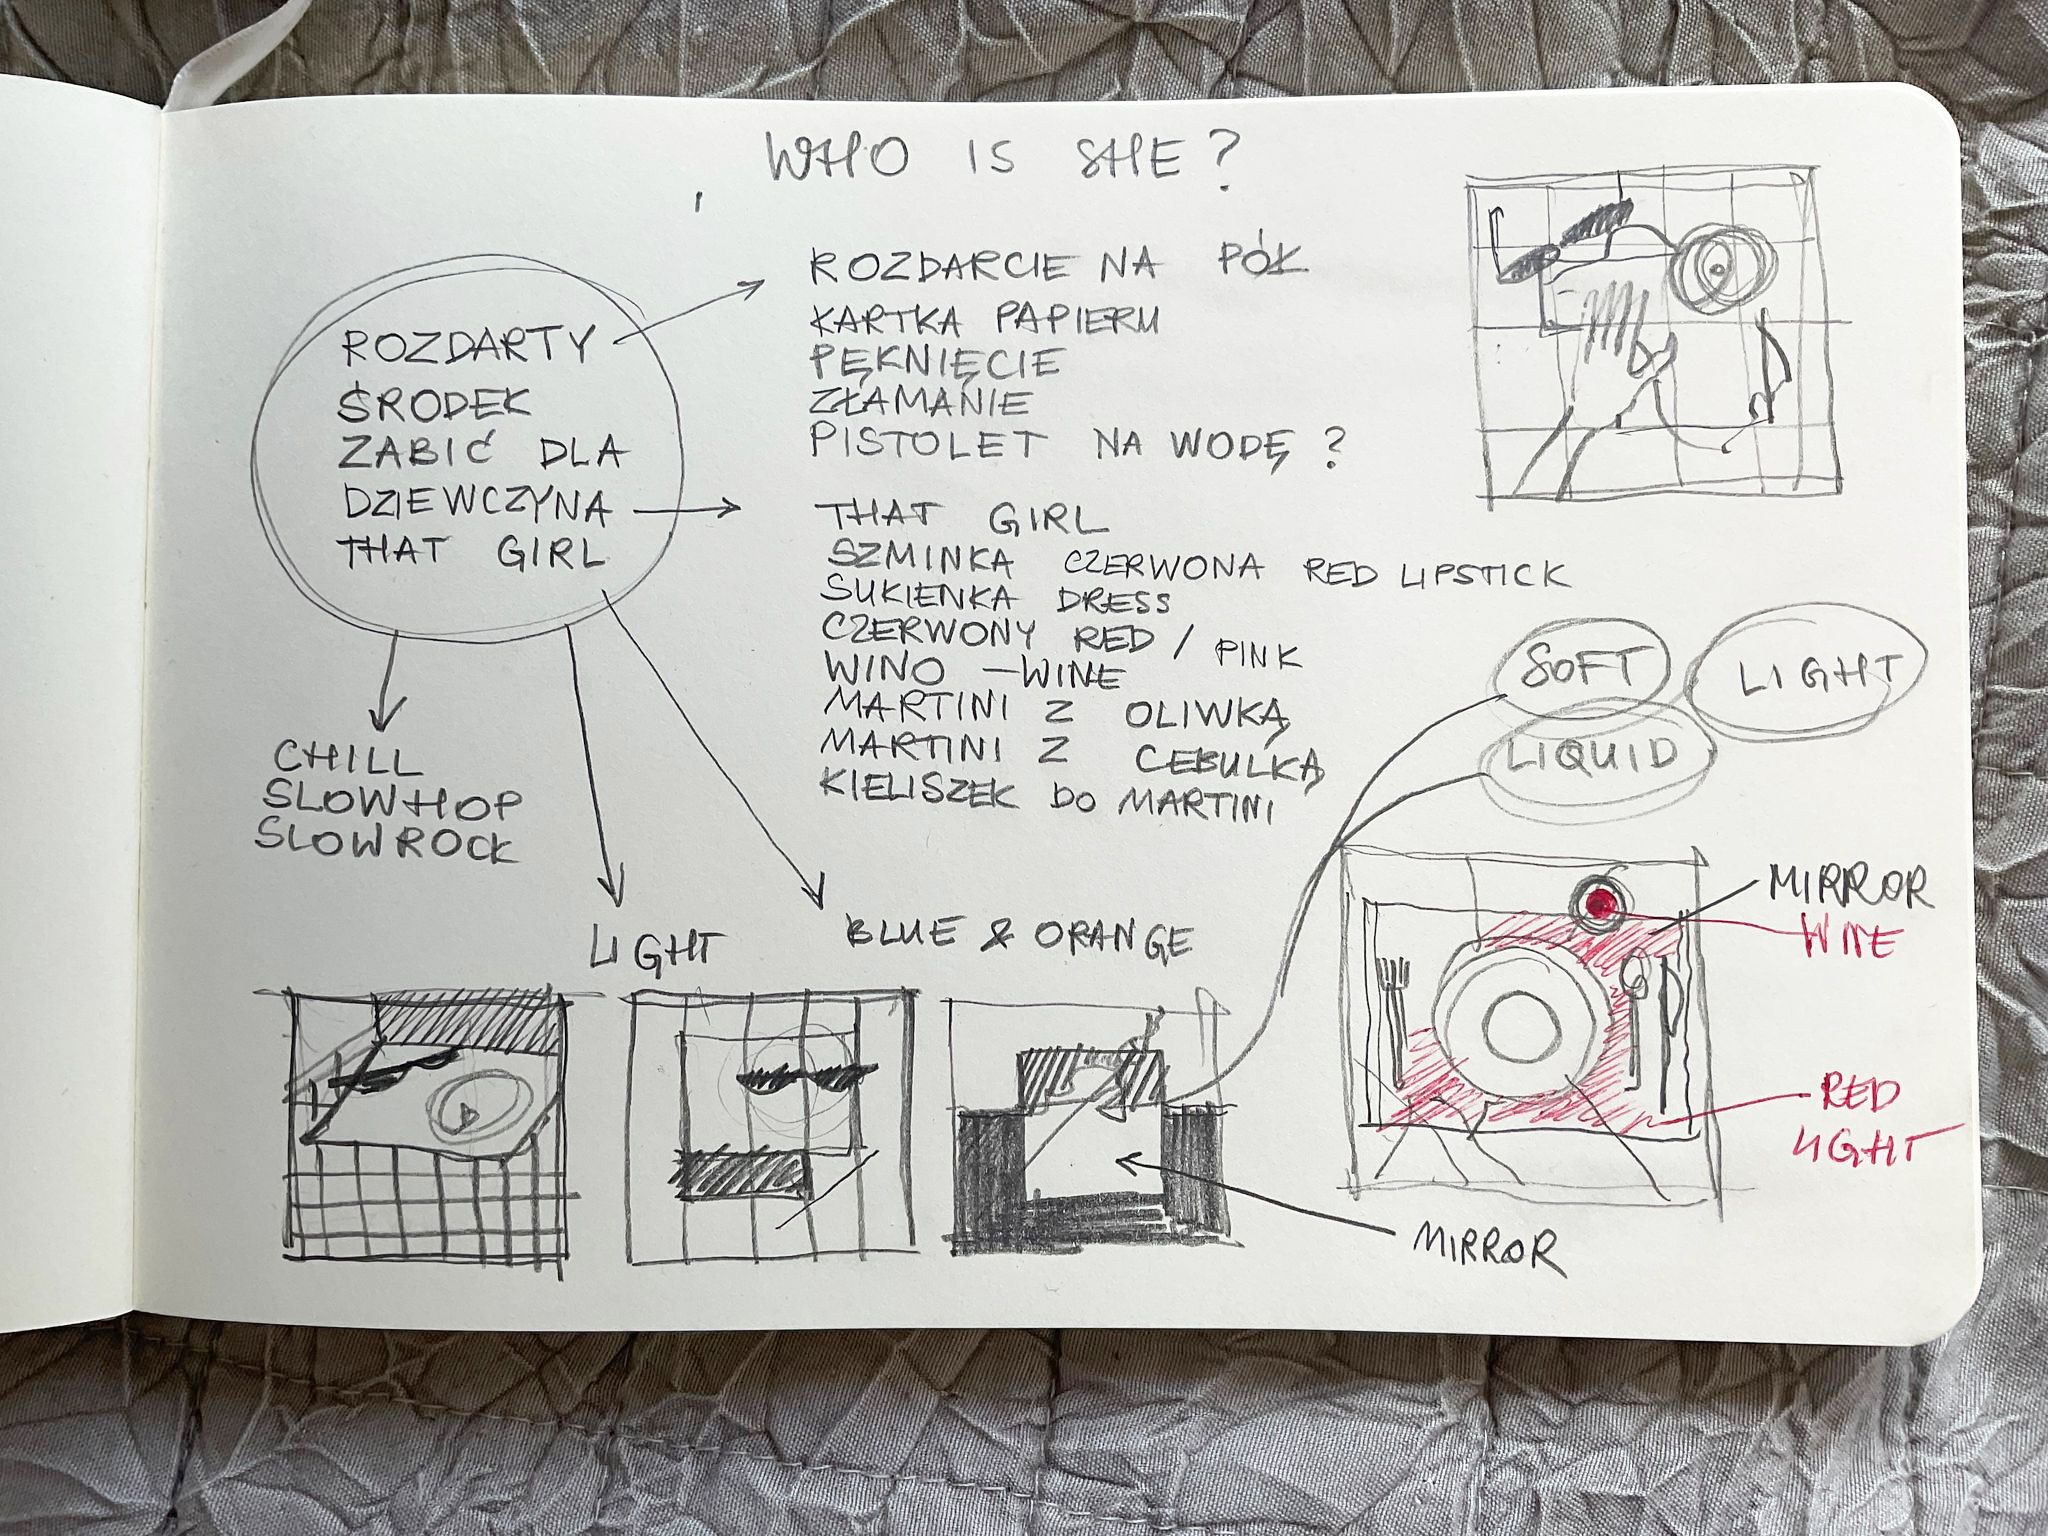 WHO IS SHE?
ROZDARTY
ŚRODEK
ZABIĆ DLA
DZIEWCZYNA
THAT GIRL
ROZDARCIE NA PÓŁ
KARTKA PAPIERU
PĘKNIĘCIE
ZŁAMANIE
PISTOLET NA WODĘ ?
THAT GIRL
SZMINKA CZERWONA RED LIPSTICK
SUKIENKA DRESS
CZERWONY RED / PINK
WINO – WINE
MARTINI Z OLIWKĄ
MARTINI Z CEBULKĄ
KIELISZEK DO MARTINI
SOFT
LIGHT
LIQUID
CHILL
SLOWHOP
SLOWROCK
LIGHT
BLUE & ORANGE
MIRROR
WINE
RED
LIGHT
MIRROR